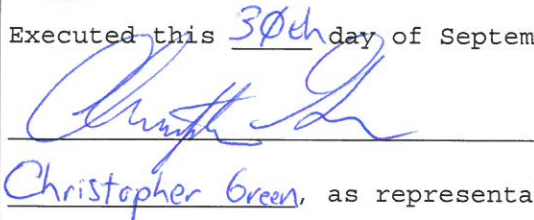 Executed this 30th day of Septem
Christopher Green, as representa